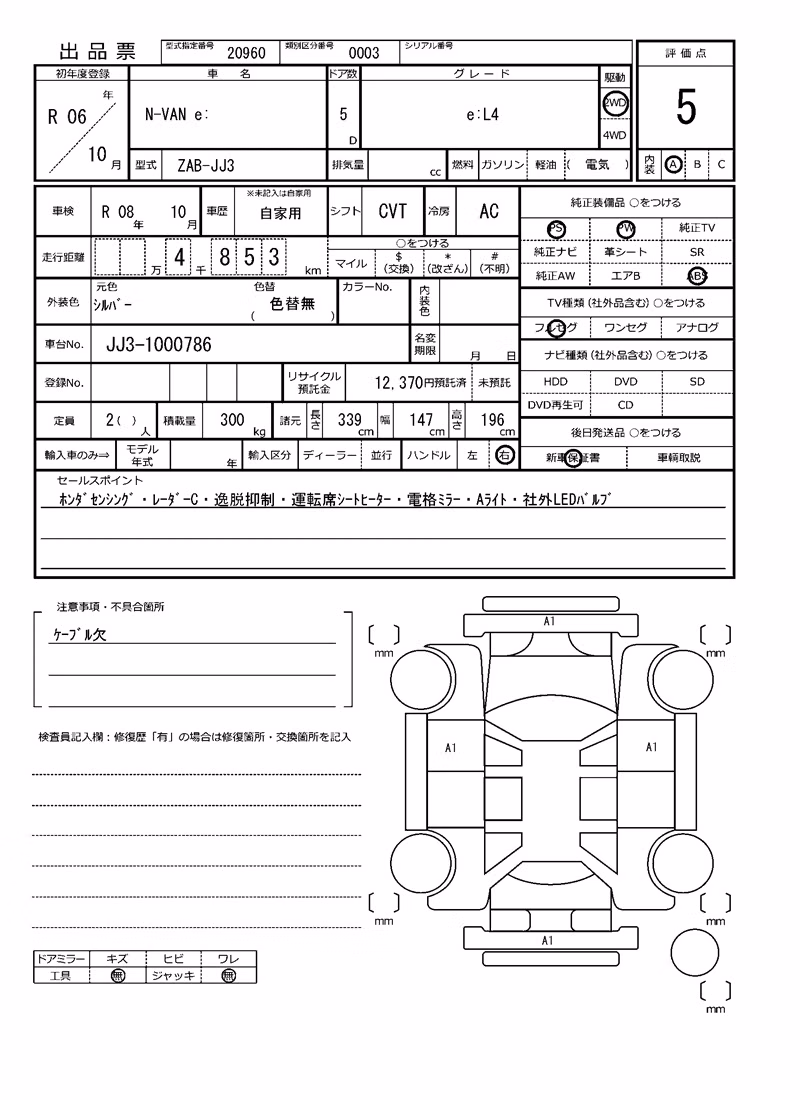 出品票 型式指定番号 20960 類別区分番号 0003 シリアル番号
評価点
初年度登録 車名 ドア数 グレード 駆動
R 06 年 10 月 N-VAN e: 5 D e:L4 2WD 4WD 5
型式 ZAB-JJ3 排気量 cc 燃料 ガソリン 軽油 ( 電気 ) 内装 A B C
車検 R 08 年 10 月 車歴 ※未記入は自家用 自家用 シフト CVT 冷房 AC
走行距離 万 4 千 8 5 3 km ○をつける マイル $(交換) *(改ざん) #(不明)
外装色 元色 シルバー 色替 ( 色替無 ) カラーNo. 内装色
車台No. JJ3-1000786 名変期限 月 日
登録No. リサイクル預託金 12,370円預託済 未預託
定員 2( ) 人 積載量 300 kg 諸元 長さ 339 cm 幅 147 cm 高さ 196 cm
輸入車のみ⇒ モデル年式 年 輸入区分 ディーラー 並行 ハンドル 左 右
純正装備品 ○をつける
PS PW 純正TV
純正ナビ 革シート SR
純正AW エアB ABS
TV種類(社外品含む)○をつける
フルセグ ワンセグ アナログ
ナビ種類(社外品含む)○をつける
HDD DVD SD
DVD再生可 CD
後日発送品 ○をつける
新車保証書 車輌取説
セールスポイント
ホンダセンシング・レーダーC・逸脱抑制・運転席シートヒーター・電格ミラー・Aライト・社外LEDバルブ
注意事項・不具合箇所
ケーブル欠
検査員記入欄:修復歴「有」の場合は修復箇所・交換箇所を記入
A1
mm mm
A1 A1
mm mm
A1
mm
ドアミラー キズ ヒビ ワレ
工具 無 ジャッキ 無